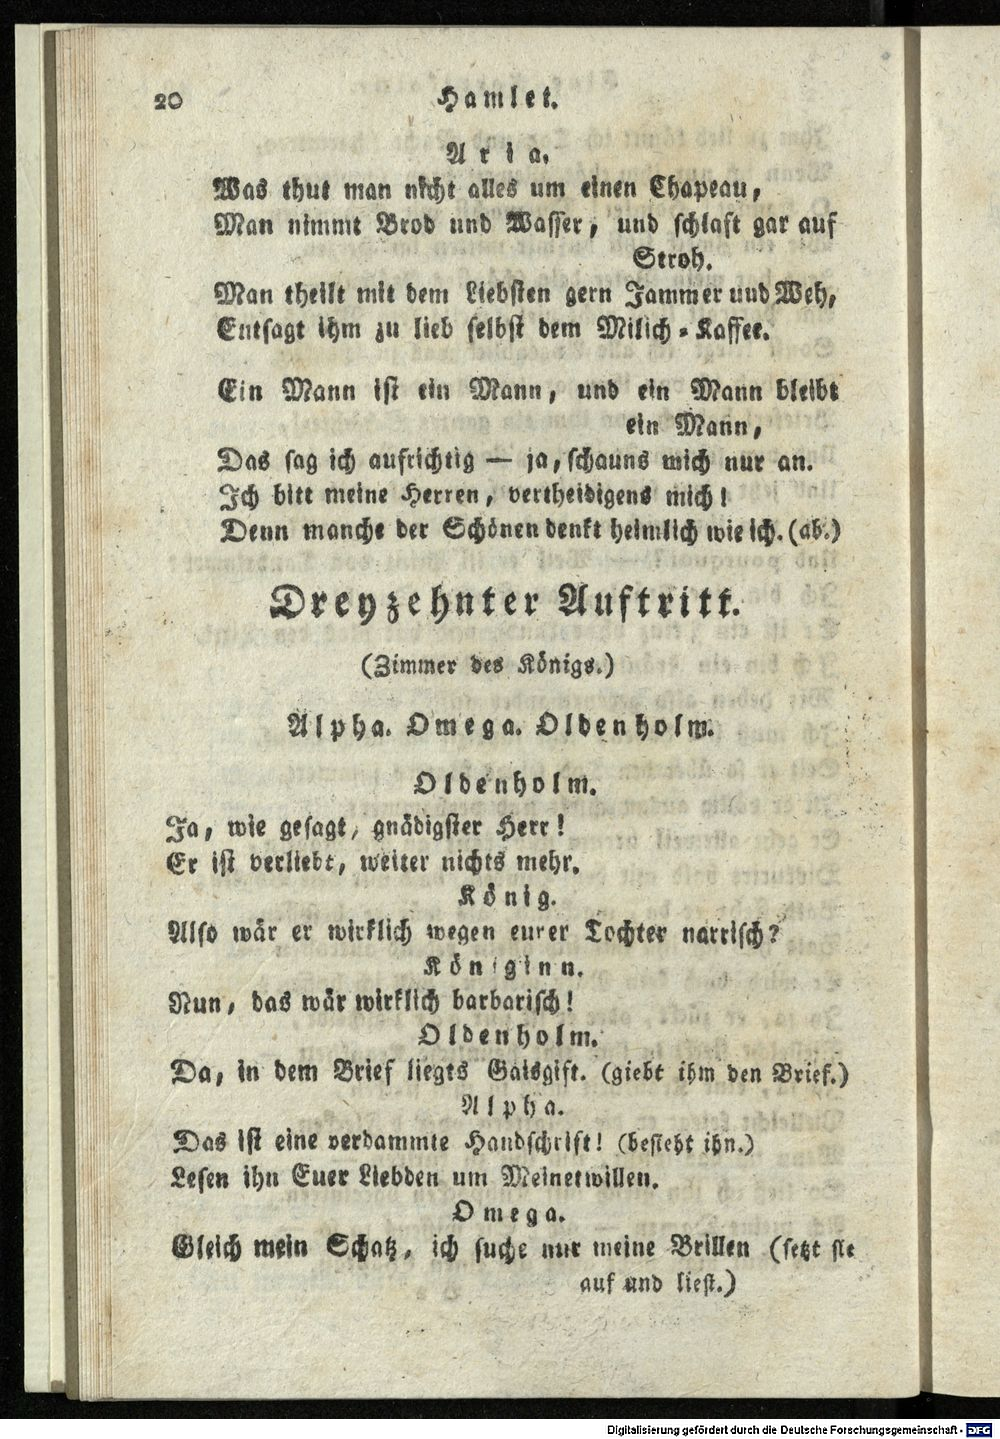 20 Hamlet.
Aria.
Was thut man nicht alles um einen Chapeau,
Man nimmt Brod und Wasser, und schlaft gar auf
Stroh.
Man theilt mit dem Liebsten gern Jammer und Weh,
Entsagt ihm zu lieb selbst dem Milich-Kaffee.
Ein Mann ist ein Mann, und ein Mann bleibt
ein Mann,
Das sag ich aufrichtig — ja, schauns mich nur an.
Ich bitt meine Herren, vertheidigens mich!
Denn manche der Schönen denkt heimlich wie ich. (ab.)
Dreyzehnter Auftritt.
(Zimmer des Königs.)
Alpha. Omega. Oldenholm.
Oldenholm.
Ja, wie gesagt, gnädigster Herr!
Er ist verliebt, weiter nichts mehr.
König.
Also wär er wirklich wegen eurer Tochter narrisch?
Königinn.
Nun, das wär wirklich barbarisch!
Oldenholm.
Da, in dem Brief liegts Gaisgift. (giebt ihm den Brief.)
Alpha.
Das ist eine verdammte Handschrift! (besieht ihn.)
Lesen ihn Euer Liebden um Meinetwillen.
Omega.
Gleich mein Schatz, ich suche nur meine Brillen (setzt sie
auf und liest.)
Digitalisierung gefördert durch die Deutsche Forschungsgemeinschaft - DFG